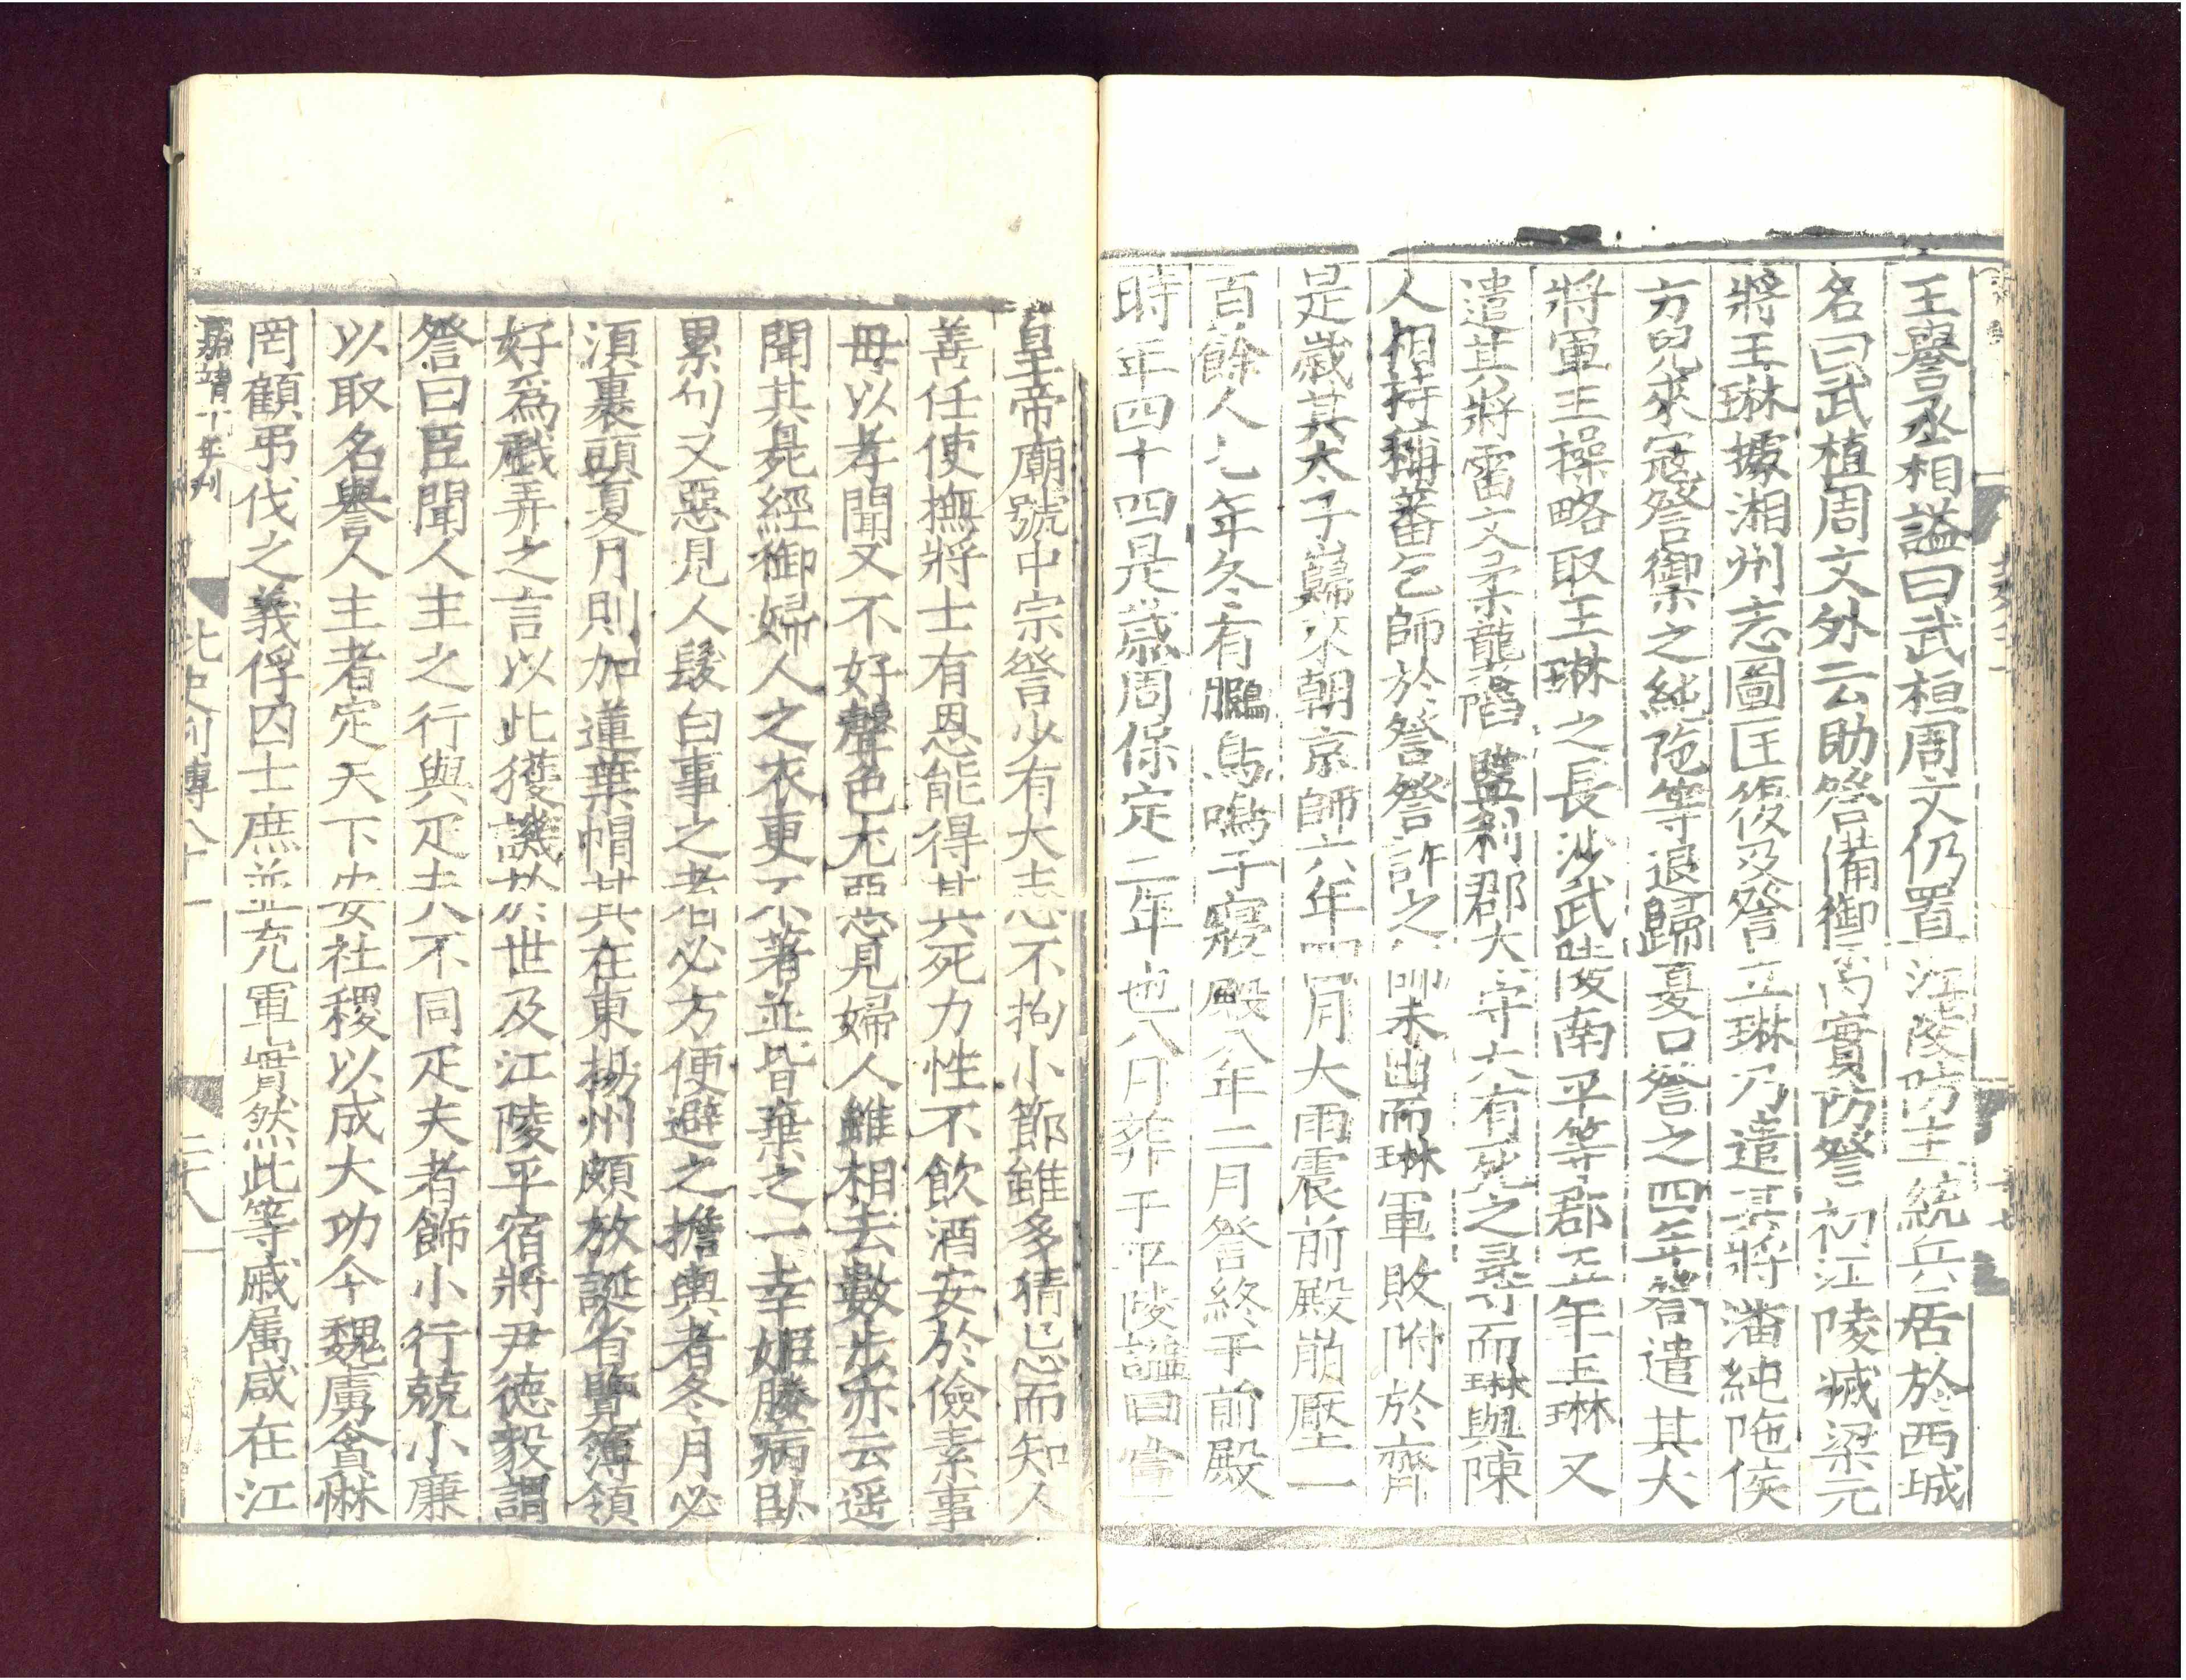 王譽丞相謚曰武桓周文仍置江陵防主統兵居於西城
名曰武植周文外云助詧備御内實防詧初江陵滅梁元
將王琳據湘州志圖匡復及詧立琳乃遣其將潘純陁侯
方兒來寇詧禦之純陁等退歸夏口詧之四年詧遣其大
將軍王操略取王琳之長沙武陵南平等郡五年王琳又
遣其將雷文柔襲陷監利郡太守大有死之尋而琳與陳
人相持稱蕃乞師於詧詧許之師未出而琳軍敗附於齊
是歲其太子巋來朝京師六年四月大雨震前殿崩壓二
百餘人七年冬有鵩鳥鳴于寢殿八年二月詧終于前殿
時年四十四是歲周保定二年也八月葬于平陵謚曰宣
皇帝廟號中宗詧少有大志不拘小節雖多猜忌而知人
善任使撫將士有恩能得其死力性不飲酒安於儉素事
母以孝聞又不好聲色尤惡見婦人雖相去數步亦云遥
聞其臰經御婦人之衣更不著並皆棄之一幸姬媵病臥
累旬又惡見人髮白事之者必方便避之擔輿者冬月必
湏裹頭夏月則加蓮葉帽其在東揚州頗放誕省覽簿領
好爲戲弄之言以此獲譏於世及江陵平宿將尹德毅謂
詧曰臣聞人主之行與疋夫不同疋夫者飾小行競小廉
以取名譽人主者定天下安社稷以成大功今魏虜貪惏
罔顧弔伐之義俘囚士庶並充軍實然此等戚属咸在江
嘉靖十年刊
北史列傳八十一
二十八